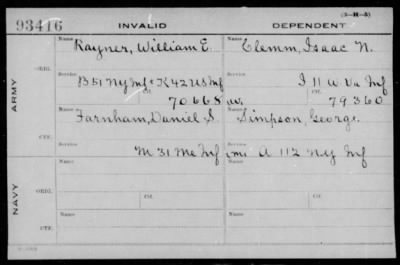 93416
INVALID
DEPENDENT
(3-H-5)
Name
Rayner, William E.
Name
Clemm, Isaac N.
ARMY
ORIG.
Service
B 51 Ny Inf & K 42 US Inf
Service
I 11 W Va Inf
Ctf.
70668
Ctf.
79360
Name
Farnham, Daniel S
Name
Simpson, George.
CTF.
Service
M 31 Me Inf
Service
A 112 N.Y Inf
NAVY
ORIG.
Name
Ctf.
Name
Ctf.
CTF.
Name
Name